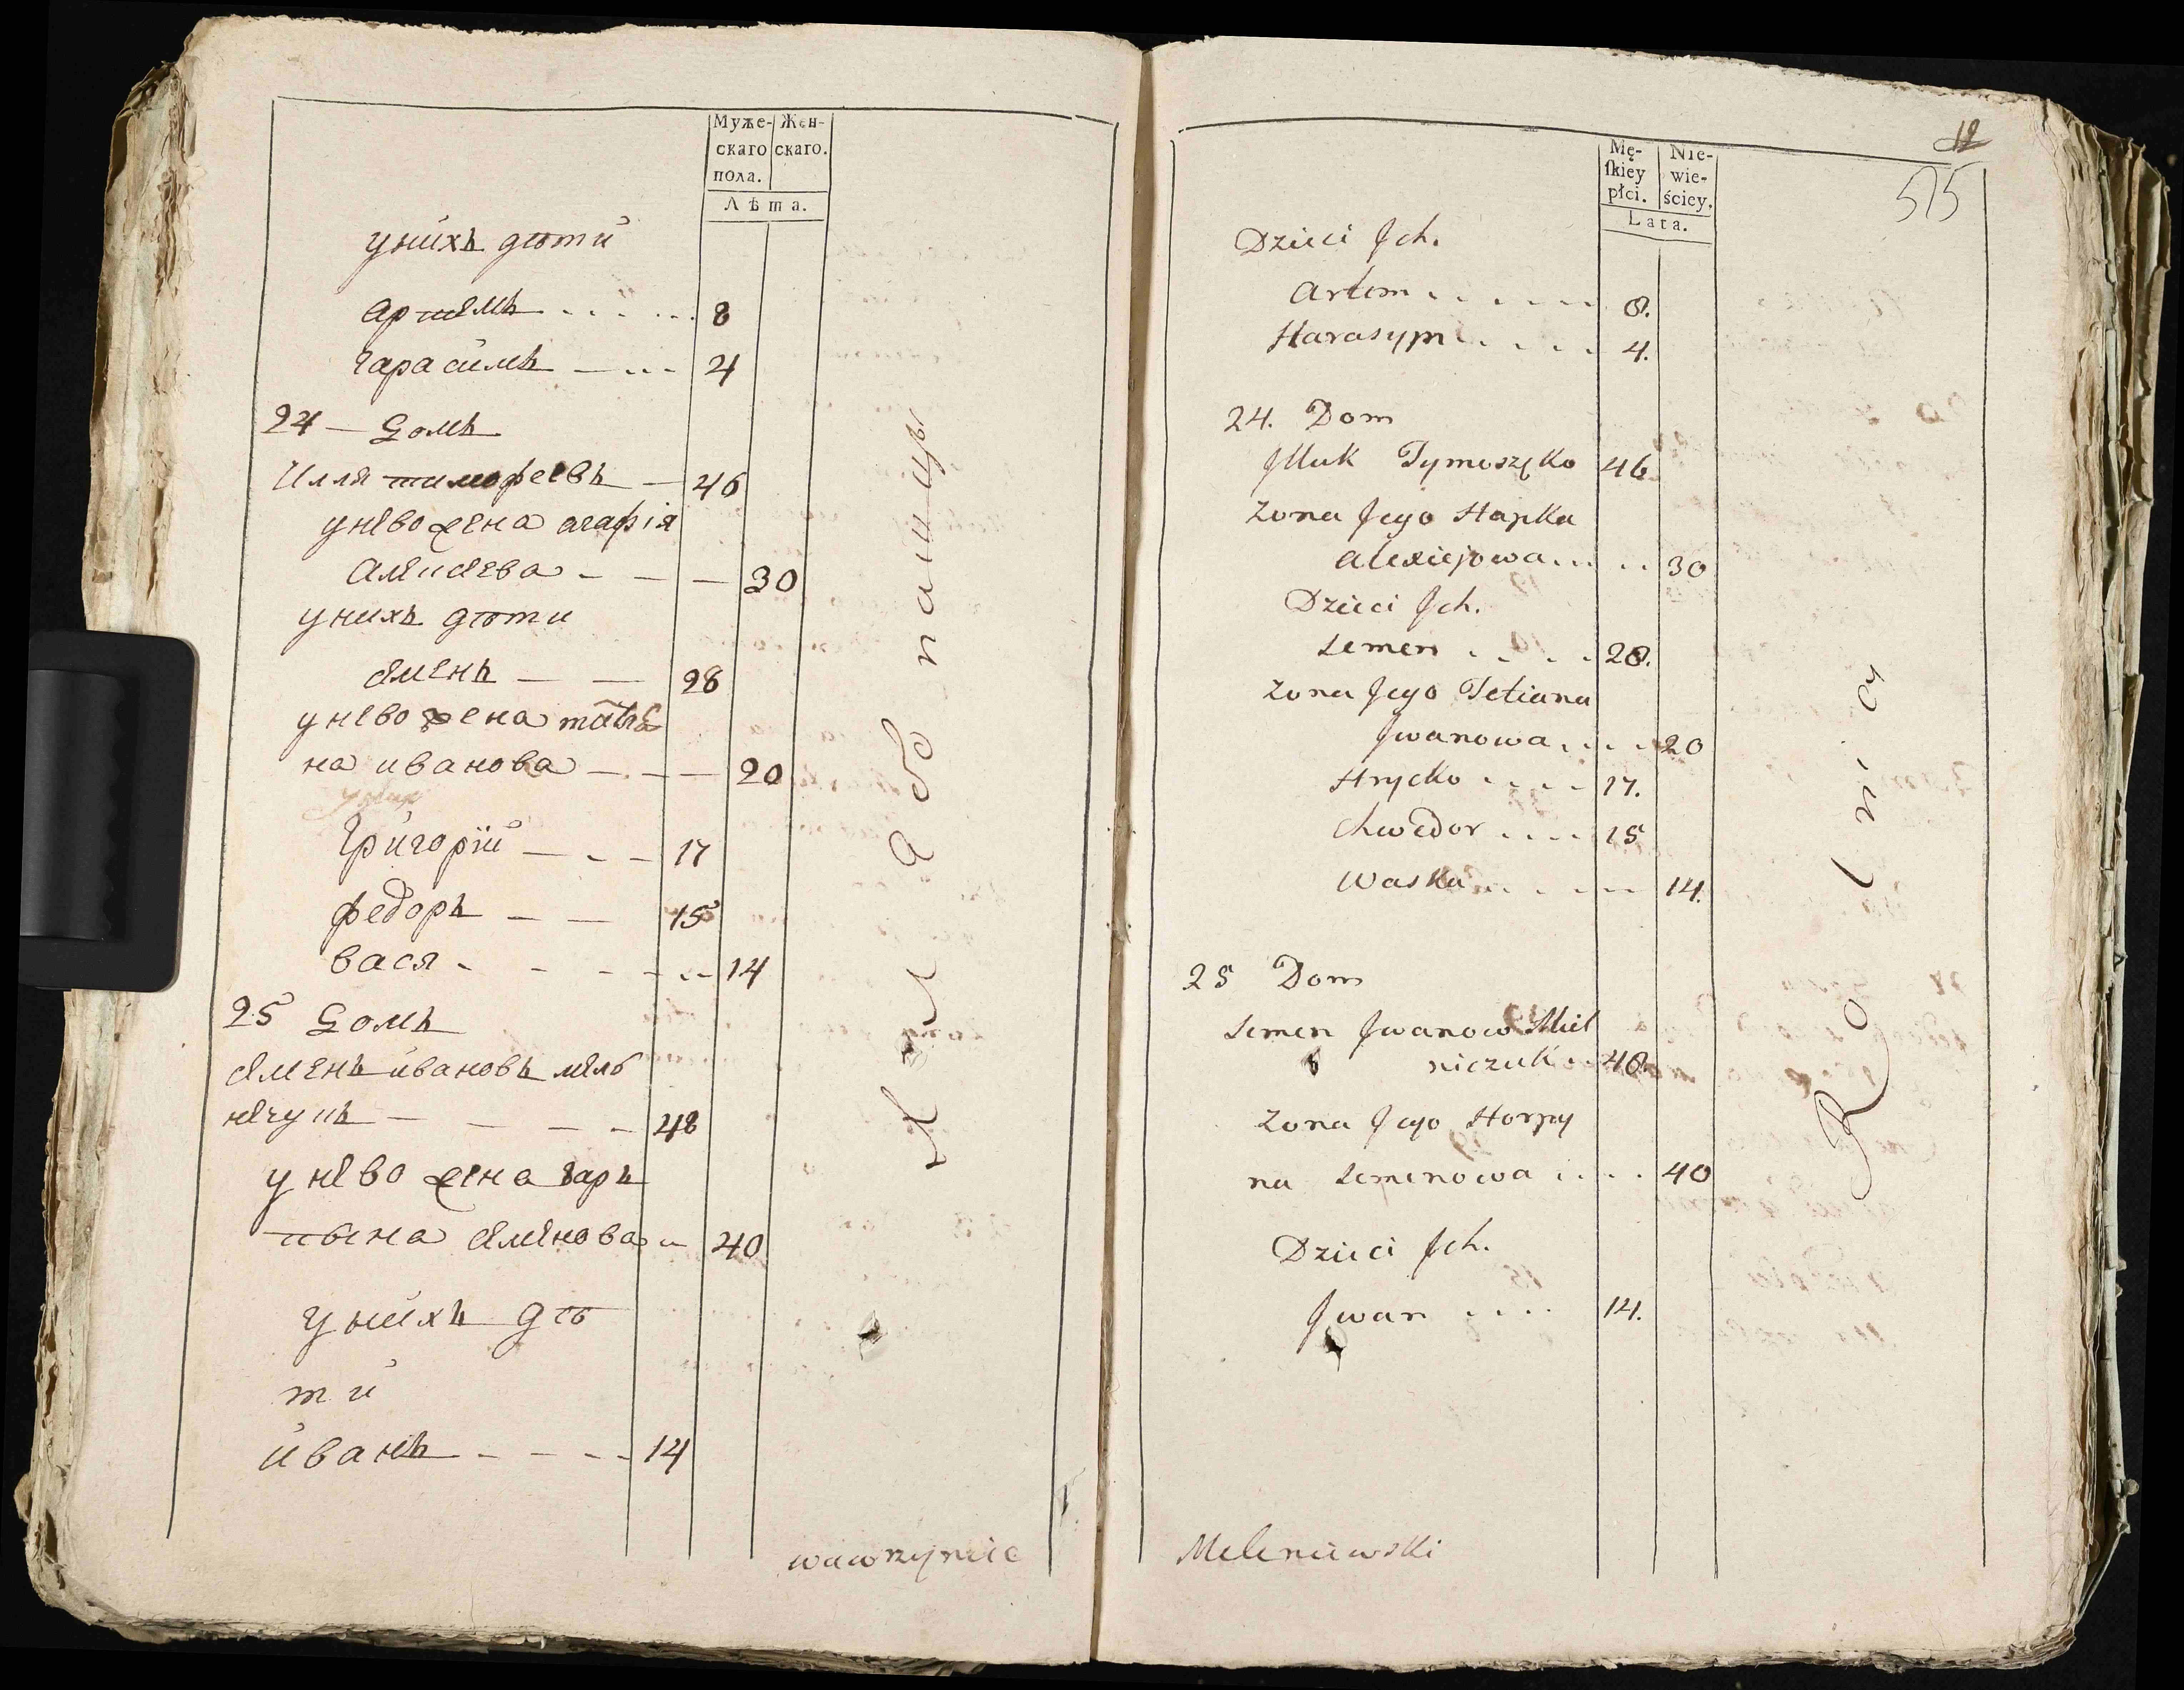 Муже- Жен-
скаго скаго.
пола.
Лѣта.
у нихъ дѣти
артемъ 8
гарасимъ 4
24 домъ
Илля тимофеевъ 46
у нево жена агафія
алексеева 30
у нихъ дѣти
семенъ 28
у нево жена татья
на иванова 20
григорій 17
федоръ 15
вася 14
25 домъ
семенъ ивановъ мель
нечукъ 48
у нево жена гаръ
пына семенова 40
у нихъ дѣ
ти
иванъ 14
Хлѣбопашцы
wawrzyniec
12
575
Mę- Nie-
ſkiey wie-
płci. ściey.
Lata.
Dzieci Jch.
Artem 8.
Harasym 4.
24. Dom
Jlluk Tymoszęko 46
Zona Jego Hapka
Alexiejowa 30
Dzieci Jch.
Semen 28.
Zona Jego Tetiana
Jwanowa 20
Hrycko 17.
Chwedor 15
Waska 14.
25 Dom
Semen Jwanow Miel
niczuk 48.
Zona Jego Horpy
na Semenowa 40
Dzieci Jch.
Jwan 14.
Rolnicy
Meleniewski